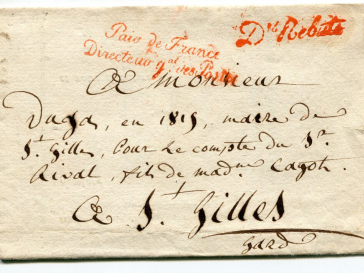 Pair de France
Directeur g.al des Postes
D.té Rebuts
A Monsieur
Duga, en 1815, maire de
S.t Gilles, Pour le compte du S.r
Rivat, fils de mad.me Cagot.
A S.t Gilles
Gard